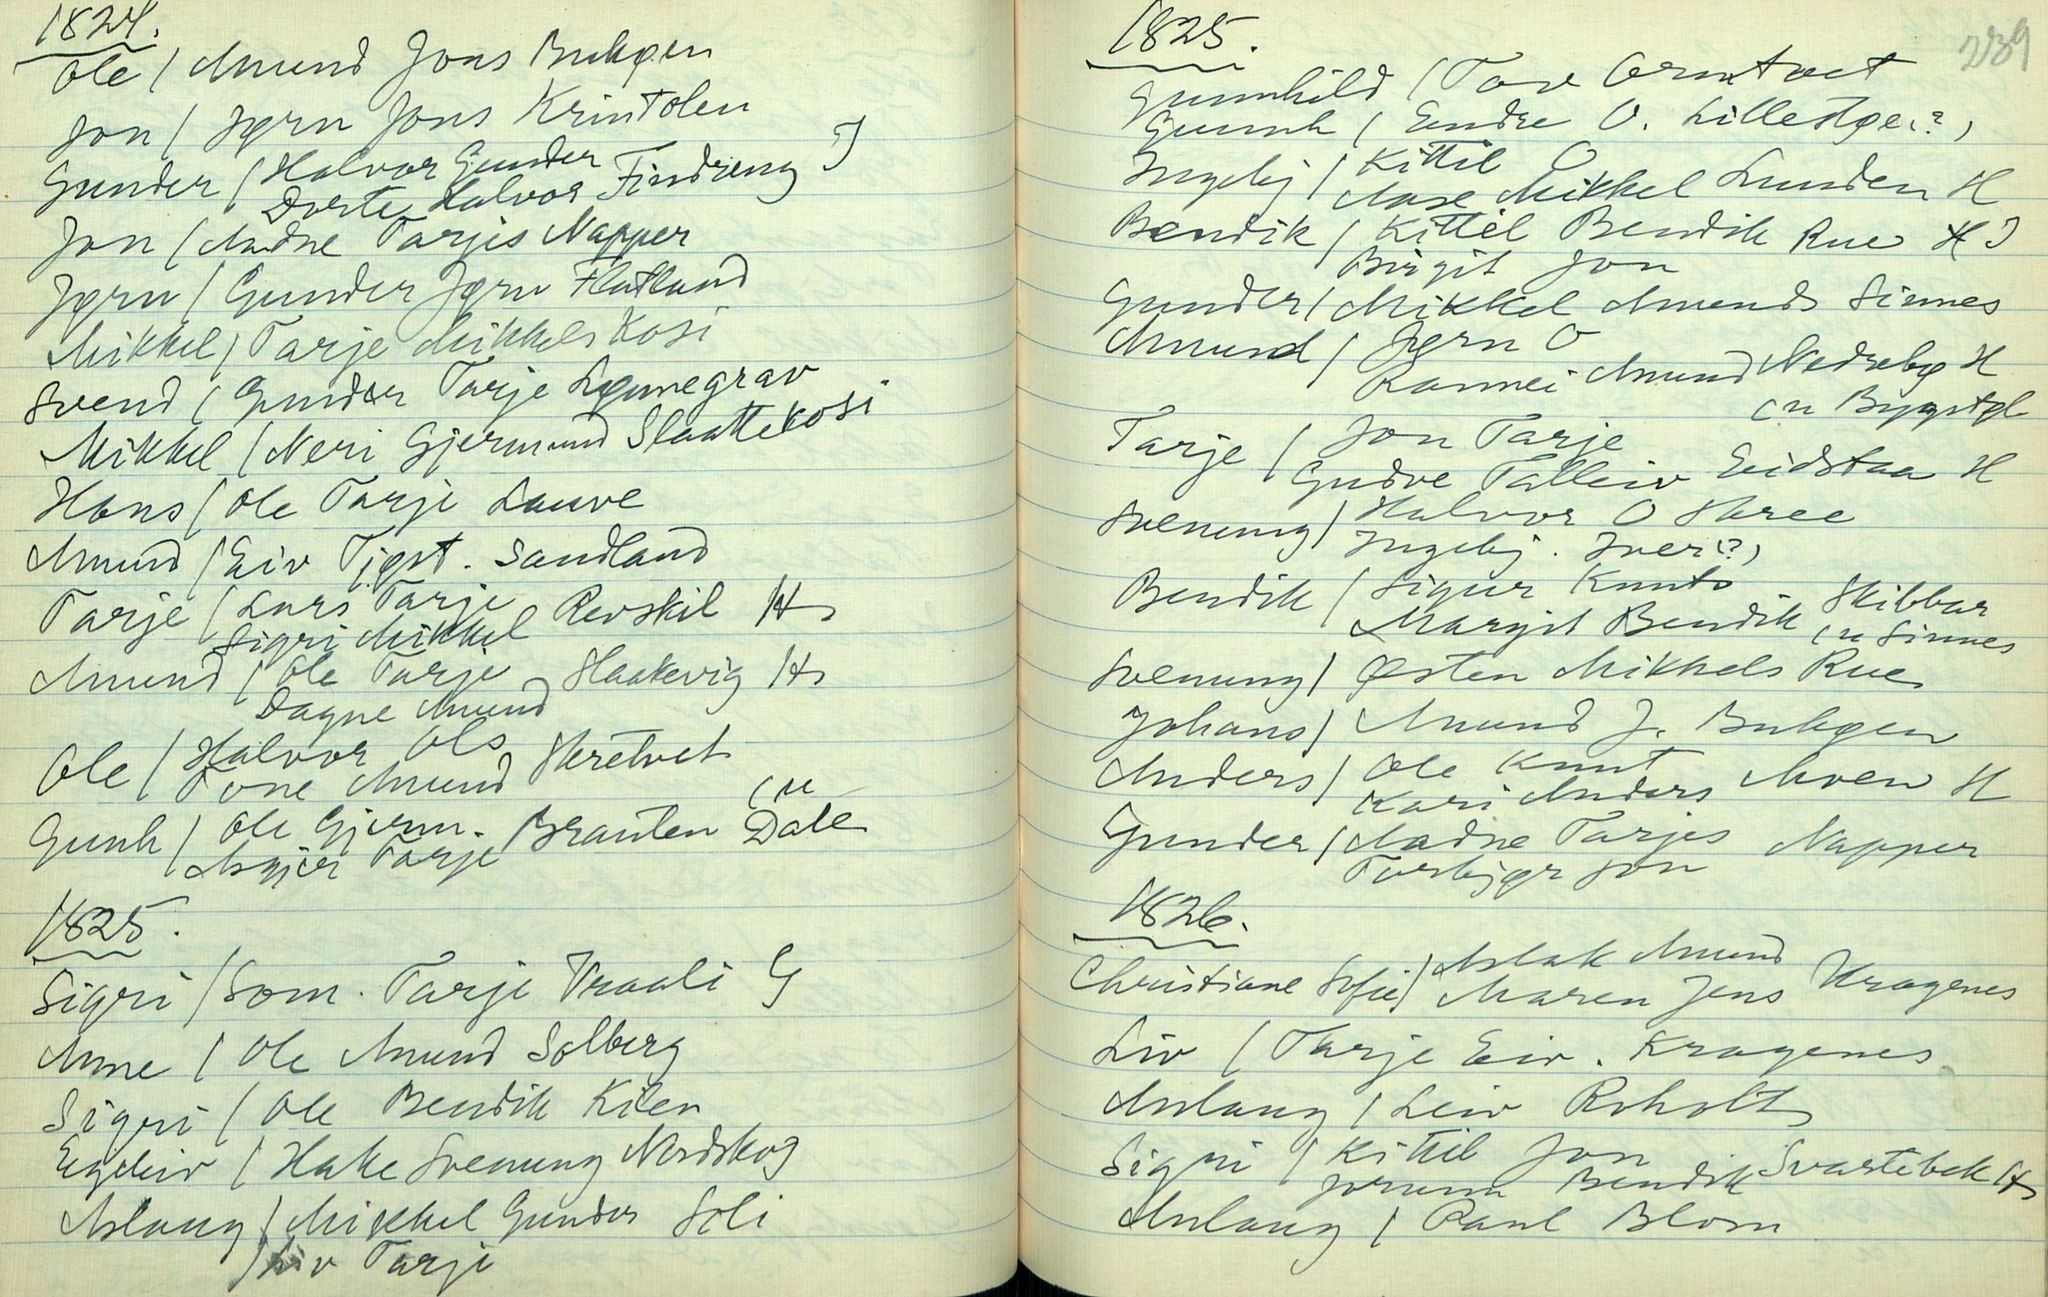 1824.
Ole / Amund Jons Bukøen
Jon / Jørn Jons Krintolen
Gunder / Halvor Gunder
Dorte Halvor Findreng J
Jon / Aadne Tarjes Napper
Jørn / Gunder Jørn Flatland
Mikkel / Tarje Mikkels Kosi
Svend / Gunder Tarje Lønnegrav
Mikkel / Neri Gjermund Slaattekosi
Hans / Ole Tarje Lauve
Amund / Eiv Tjøst. Sandland
Tarje / Lars Tarje Revskil H
Sigri Mikkel
Amund / Ole Tarje Haakevig H
Dagne Amund
Ole / Halvor Ols
Tone Amund Skretvet
Gunh / Ole Gjerm. Brauten Dale
Asgjer Tarje
1825.
Sigri / Som. Tarje Vraali G
Anne / Ole Amund Solberg
Sigri / Ole Bendik Kilen
Egeleiv / Hake Svenung Nordskog
Aslaug / Mikkel Gunder Soli
Liv Tarje
239
1825.
Gunnhild / Tov Ormtvet
Gunnh / Endre O. Lillestøe(?)
Ingebj / Kittil O
Aase Mikkel Lunden H
Bendik / Kittil Bendik Rue H J
Birgit Jon
Gunder / Mikkel Amunds Sinnes
Amund / Jørn O
Rannei Amund Nedrebø H
(u Bygstøl
Tarje / Jon Tarje
Gudve Talleiv Eidstaa H
Svenung / Halvor O Skree
Ingebj. Iver(?)
Bendik / Sigur Knuts
Margit Bendik Skibbar
(u Sinnes
Svenung / Østen Mikkels Rue
Johans / Amund J. Bukøen
Anders / Ole Knut
Kari Anders Moen H
Gunder / Aadne Tarjes Napper
Torbjør Jon
1826.
Christiane Sofie / Aslak Amund
Maren Jens Kragenes
Liv / Tarje Eiv. Kragenes
Aslaug / Leiv Roholt
Sigri / Kittil Jon
Jorunn Bendik Svartebek H
Aslaug / Paul Blom